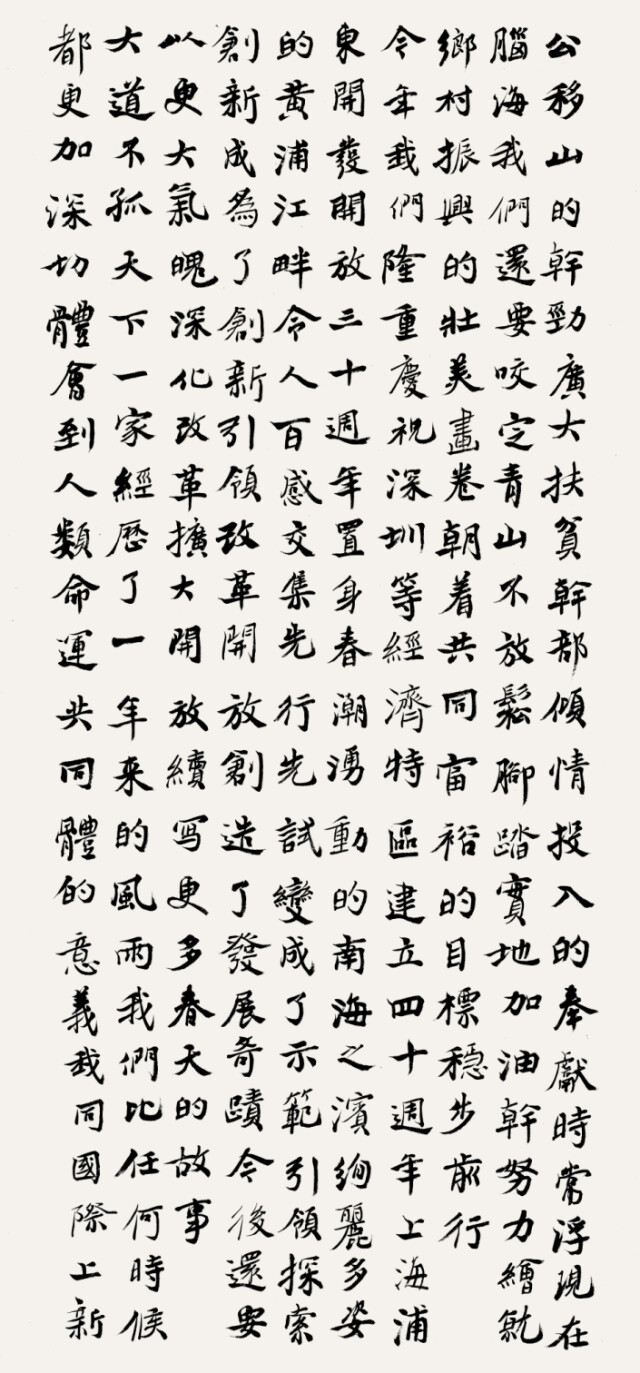 公移山的幹勁廣大扶貧幹部傾情投入的奉獻時常浮現在
腦海我們還要咬定青山不放鬆腳踏實地加油幹努力繪就
鄉村振興的壯美畫卷朝着共同富裕的目標穩步前行
今年我們隆重慶祝深圳等經濟特區建立四十週年上海浦
東開發開放三十週年置身春潮湧動的南海之濱絢麗多姿
的黃浦江畔令人百感交集先行先試變成了示範引領探索
創新成為了創新引領改革開放創造了發展奇蹟今後還要
以更大氣魄深化改革擴大開放續写更多春天的故事
大道不孤天下一家經歷了一年来的風雨我們比任何時候
都更加深切體會到人類命運共同體的意義我同國際上新